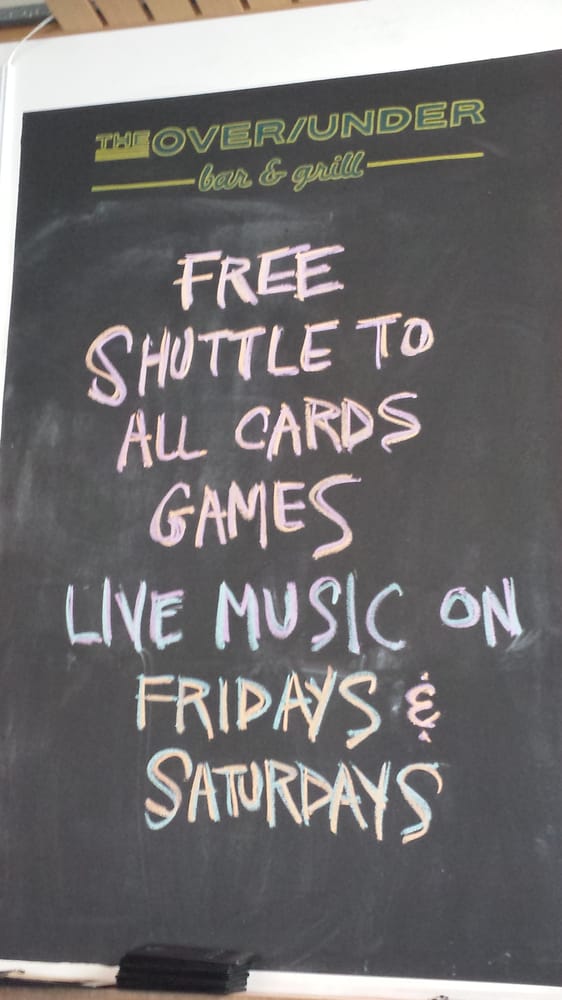 THE OVER/UNDER
bar & grill
FREE
SHUTTLE TO
ALL CARDS
GAMES
LIVE MUSIC ON
FRIDAYS &
SATURDAYS